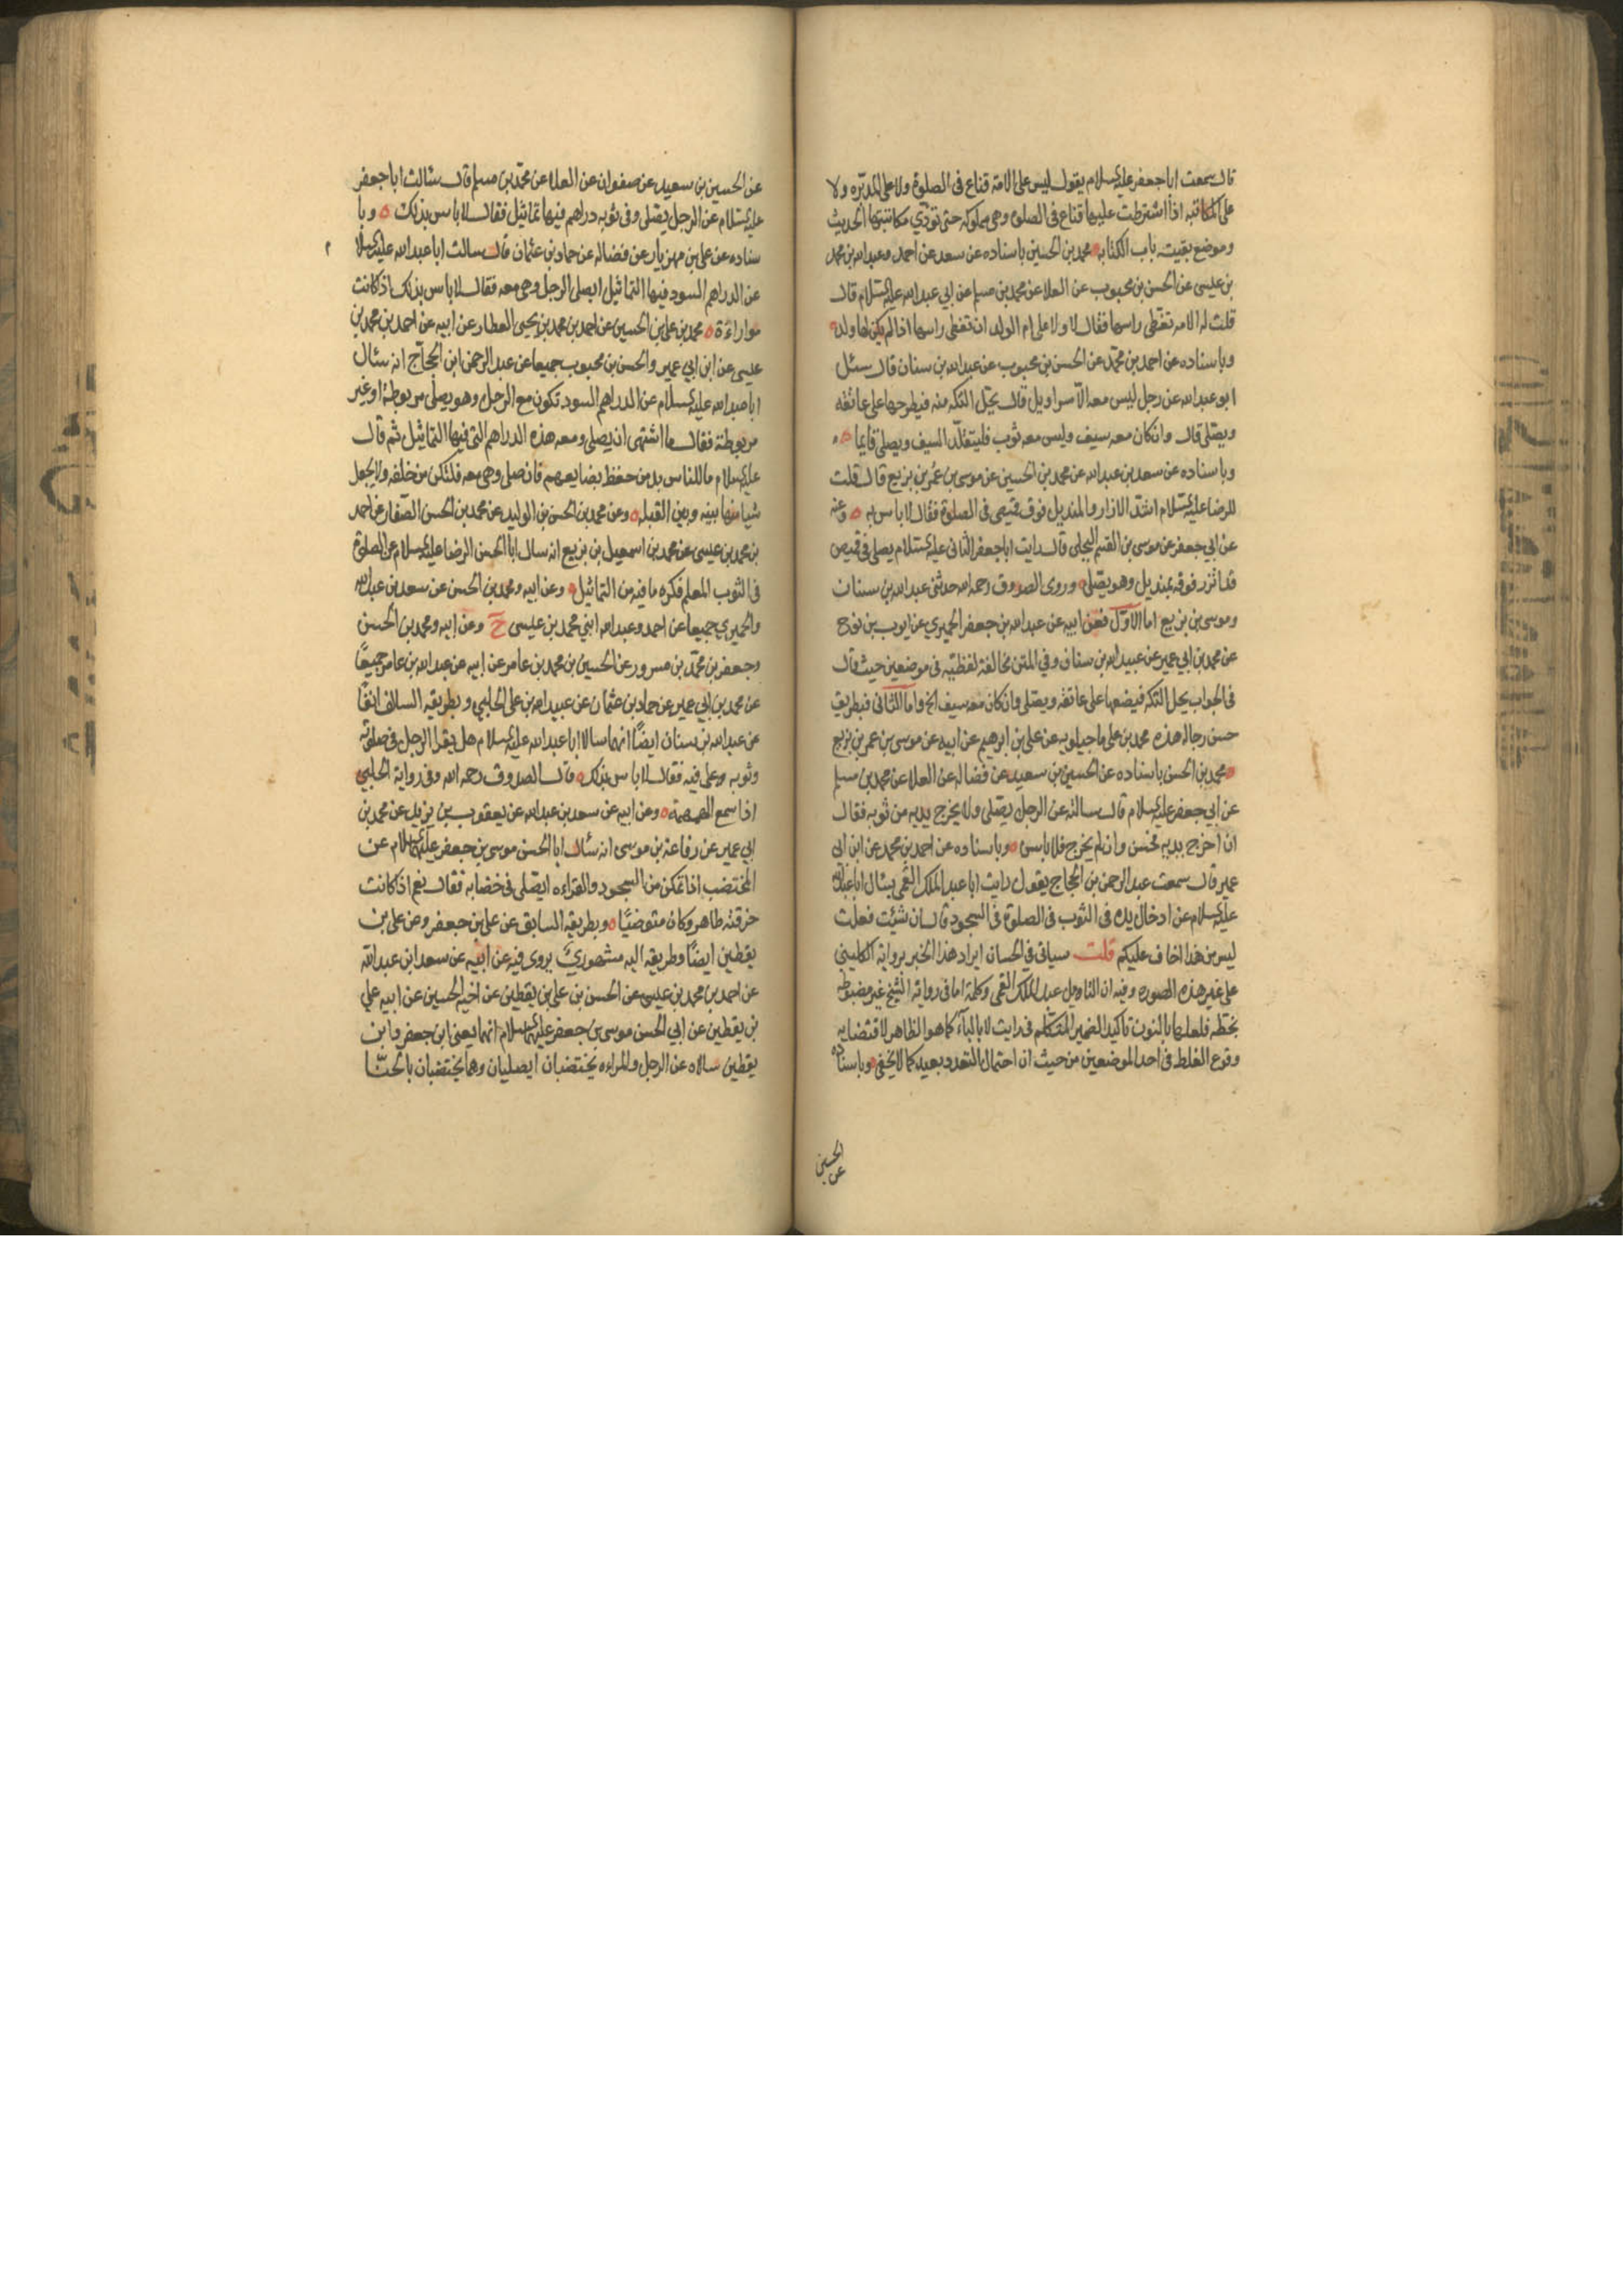 قال سمعت ابا جعفر عليه السلام يقول ليس على الامة قناع فى الصلوة ولا على المدبره ولا
على المكاتبه اذا اشترطت عليها قناع فى الصلوة وهى مملوكه حتى تؤدي مكاتبتها الحديث
وموضع بقيته باب الكتابه محمد بن الحسين باسناده عن سعد عن احمد وعبد الله بن محمد
بن عيسى عن الحسن بن محبوب عن العلا عن محمد بن مسلم عن ابي عبد الله عليه السلام قال
قلت له الامه تغطى راسها فقال لا ولا على ام الولد ان تغطى راسها اذا لم يكن لها ولد
وباسناده عن احمد بن محمد عن الحسن بن محبوب عن عبد الله بن سنان قال سئل
ابو عبد الله عن رجل ليس معه الا سراويل قال يحل التكه منه فيطرحها على عاتقه
ويصلى قال وان كان معه سيف وليس معه ثوب فليتقلد السيف ويصلى قايما
وباسناده عن سعد بن عبد الله عن محمد بن الحسين عن موسى بن عمر بن بزيع قال قلت
للرضا عليه السلام اشد الازار والمنديل فوق قميصى فى الصلوة فقال لا باس به وعنه
عن ابي جعفر عن موسى بن القسم البجلى قال رايت ابا جعفر الثانى عليه السلام يصلى فى قميص
قد اتزر فوقه بمنديل وهو يصلى وروى الصدوق رحمه الله حديثى عبد الله بن سنان
وموسى بن بزيع اما الاول فعن ابيه عن عبد الله بن جعفر الحميري عن ايوب بن نوح
عن محمد بن ابي عمير عن عبد الله بن سنان وفي المتن مخالفة لفظيه فى موضعين حيث قال
فى الجواب يحل التكه فيضعها على عاتقه ويصلى وان كان معه سيف الخ واما الثانى فبطريق
حسن رجاله هذه محمد بن على ماجيلويه عن على بن ابرهيم عن ابيه عن موسى بن عمر بن بزيع
محمد بن الحسن باسناده عن الحسين بن سعيد عن فضاله عن العلا عن محمد بن مسلم
عن ابي جعفر عليه السلام قال سالته عن الرجل يصلى ولا يخرج يديه من ثوبه فقال
ان اخرج يديه فحسن وان لم يخرج فلا باس وباسناده عن احمد بن محمد عن ابن ابى
عمير قال سمعت عبد الرحمن بن الحجاج يقول رايت ابا عبد الملك القمى يسال ابا عبد الله
عليه السلام عن ادخال يده فى الثوب فى الصلوة فى السجود قال ان شئت فعلت
ليس من هذا اخاف عليكم قلت سياتى في الحسان ايراد هذا الخبر برواية الكلينى
على غير هذه الصوره وفيه ان القائل عبد الملك القمى وكلمة اما فى رواية الشيخ غير مضبوطه
بخطه فلعلها بالنون تاكيد الضمير المتكلم فى رايت لا بالباء كما هو الظاهر لاقتضايه
وقوع الغلط فى احد الموضعين من حيث ان احتمال التعدد بعيد كما لا يخفى وباسناده
الحسين
عن
عن الحسين بن سعيد عن صفوان عن العلا عن محمد بن مسلم قال سئالت ابا جعفر
عليه السلام عن الرجل يصلى وفى ثوبه دراهم فيها تماثيل فقال لا باس بذلك وبا
سناده عن على بن مهزيار عن فضاله عن حماد بن عثمان قال سالت ابا عبد الله عليه السلام
عن الدراهم السود فيها التماثيل ايصلى الرجل وهى معه فقال لا باس بذلك اذا كانت
مواراءة محمد بن على بن الحسين عن احمد بن محمد بن يحيى العطار عن ابيه عن احمد بن محمد بن
عيسى عن ابن ابي عمير والحسن بن محبوب جميعا عن عبد الرحمن ابن الحجاج انه سئال
ابا عبد الله عليه السلام عن الدراهم السود تكون مع الرجل وهو يصلى مربوطة او غير
مربوطة فقال ما اشتهى ان يصلى ومعه هذه الدراهم التى فيها التماثيل ثم قال
عليه السلام ما للناس بد من حفظ بضايعهم فان صلى وهى معه فلتكن من خلفه ولا يجعل
شيا منها بينه وبين القبله وعن محمد بن الحسن بن الوليد عن محمد بن الحسن الصفار عن احمد
بن محمد بن عيسى عن محمد بن اسمعيل بن بزيع انه سال ابا الحسن الرضا عليه السلام عن الصلوة
فى الثوب المعلم فكره ما فيه من التماثيل وعن ابيه ومحمد بن الحسن عن سعد بن عبد الله
والحميري جميعا عن احمد وعبد الله ابني محمد بن عيسى ح وعن ابيه ومحمد بن الحسن
وجعفر بن محمد بن مسرور عن الحسين بن محمد بن عامر عن ابيه عن عبد الله بن عامر جميعا
عن محمد بن ابي عمير عن حماد بن عثمان عن عبيد الله بن على الحلبي وبطريقه السالف انفا
عن عبد الله بن سنان ايضا انهما سالا ابا عبد الله عليه السلام هل يقرا الرجل فى صلوته
وثوبه على فيه فقال لا باس بذلك قال الصدوق رحمه الله وفى رواية الحلبي
اذا سمع الهمهمة وعن ابيه عن سعد بن عبد الله عن يعقوب بن يزيد عن محمد بن
ابي عمير عن رفاعة بن موسى انه سئال ابا الحسن موسى بن جعفر عليهما السلام عن
المختضب اذا تمكن من السجود والقراءه ايصلى فى خضابه فقال نعم اذا كانت
خرقته طاهره وكان متوضيا وبطريقه السابق عن على بن جعفر وعن على بن
يقطين ايضا وطريقه اليه مشهوري يروى فيه عن ابيه عن سعد ابن عبد الله
عن احمد بن محمد بن عيسى عن الحسن بن على بن يقطين عن اخيه الحسين عن ابيه علي
بن يقطين عن ابي الحسن موسى بن جعفر عليهما السلام انهما يعنى ابن جعفر وابن
يقطين سالاه عن الرجل والمراءه يختضبان ايصليان وهما يختضبان بالحنا